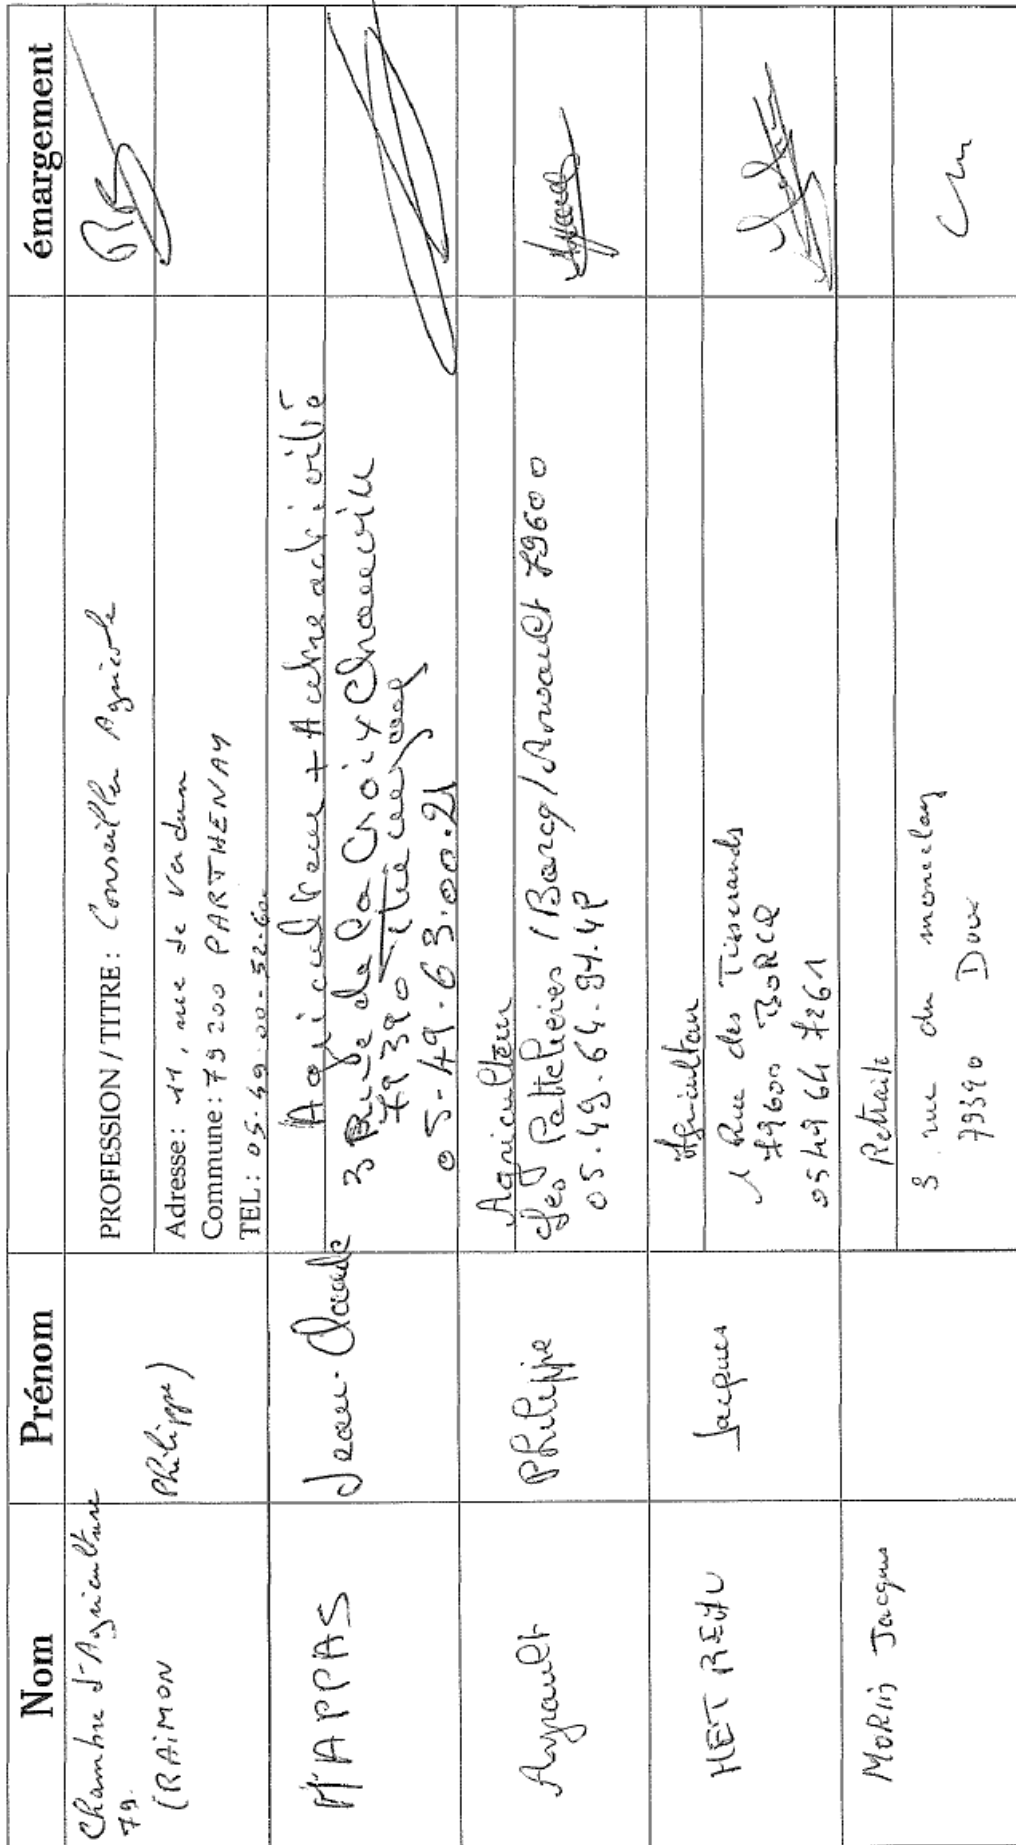 Nom Prénom émargement
Chambre d'Agriculture
79.
(RAIMON Philippe)
PROFESSION / TITRE : Conseiller Agricole
Adresse : 11, rue de Verdun
Commune : 79200 PARTHENAY
TEL : 05.49.00.52.60.
MAPPAS Jean-Claude
Agriculteur + Autre activité
3 Rue de la Croix
79390
05.49.63.00.21
Ayrault Philippe
Agriculteur
Les /Borcq/Airvault 79600
05.49.64.94.48
HETREAU Jacques
Agriculteur
1 Rue des Tisserands
79600 BORCQ
05 49 64 72 61
MORIN Jacques
Retraité
3 rue du
79390 Doux